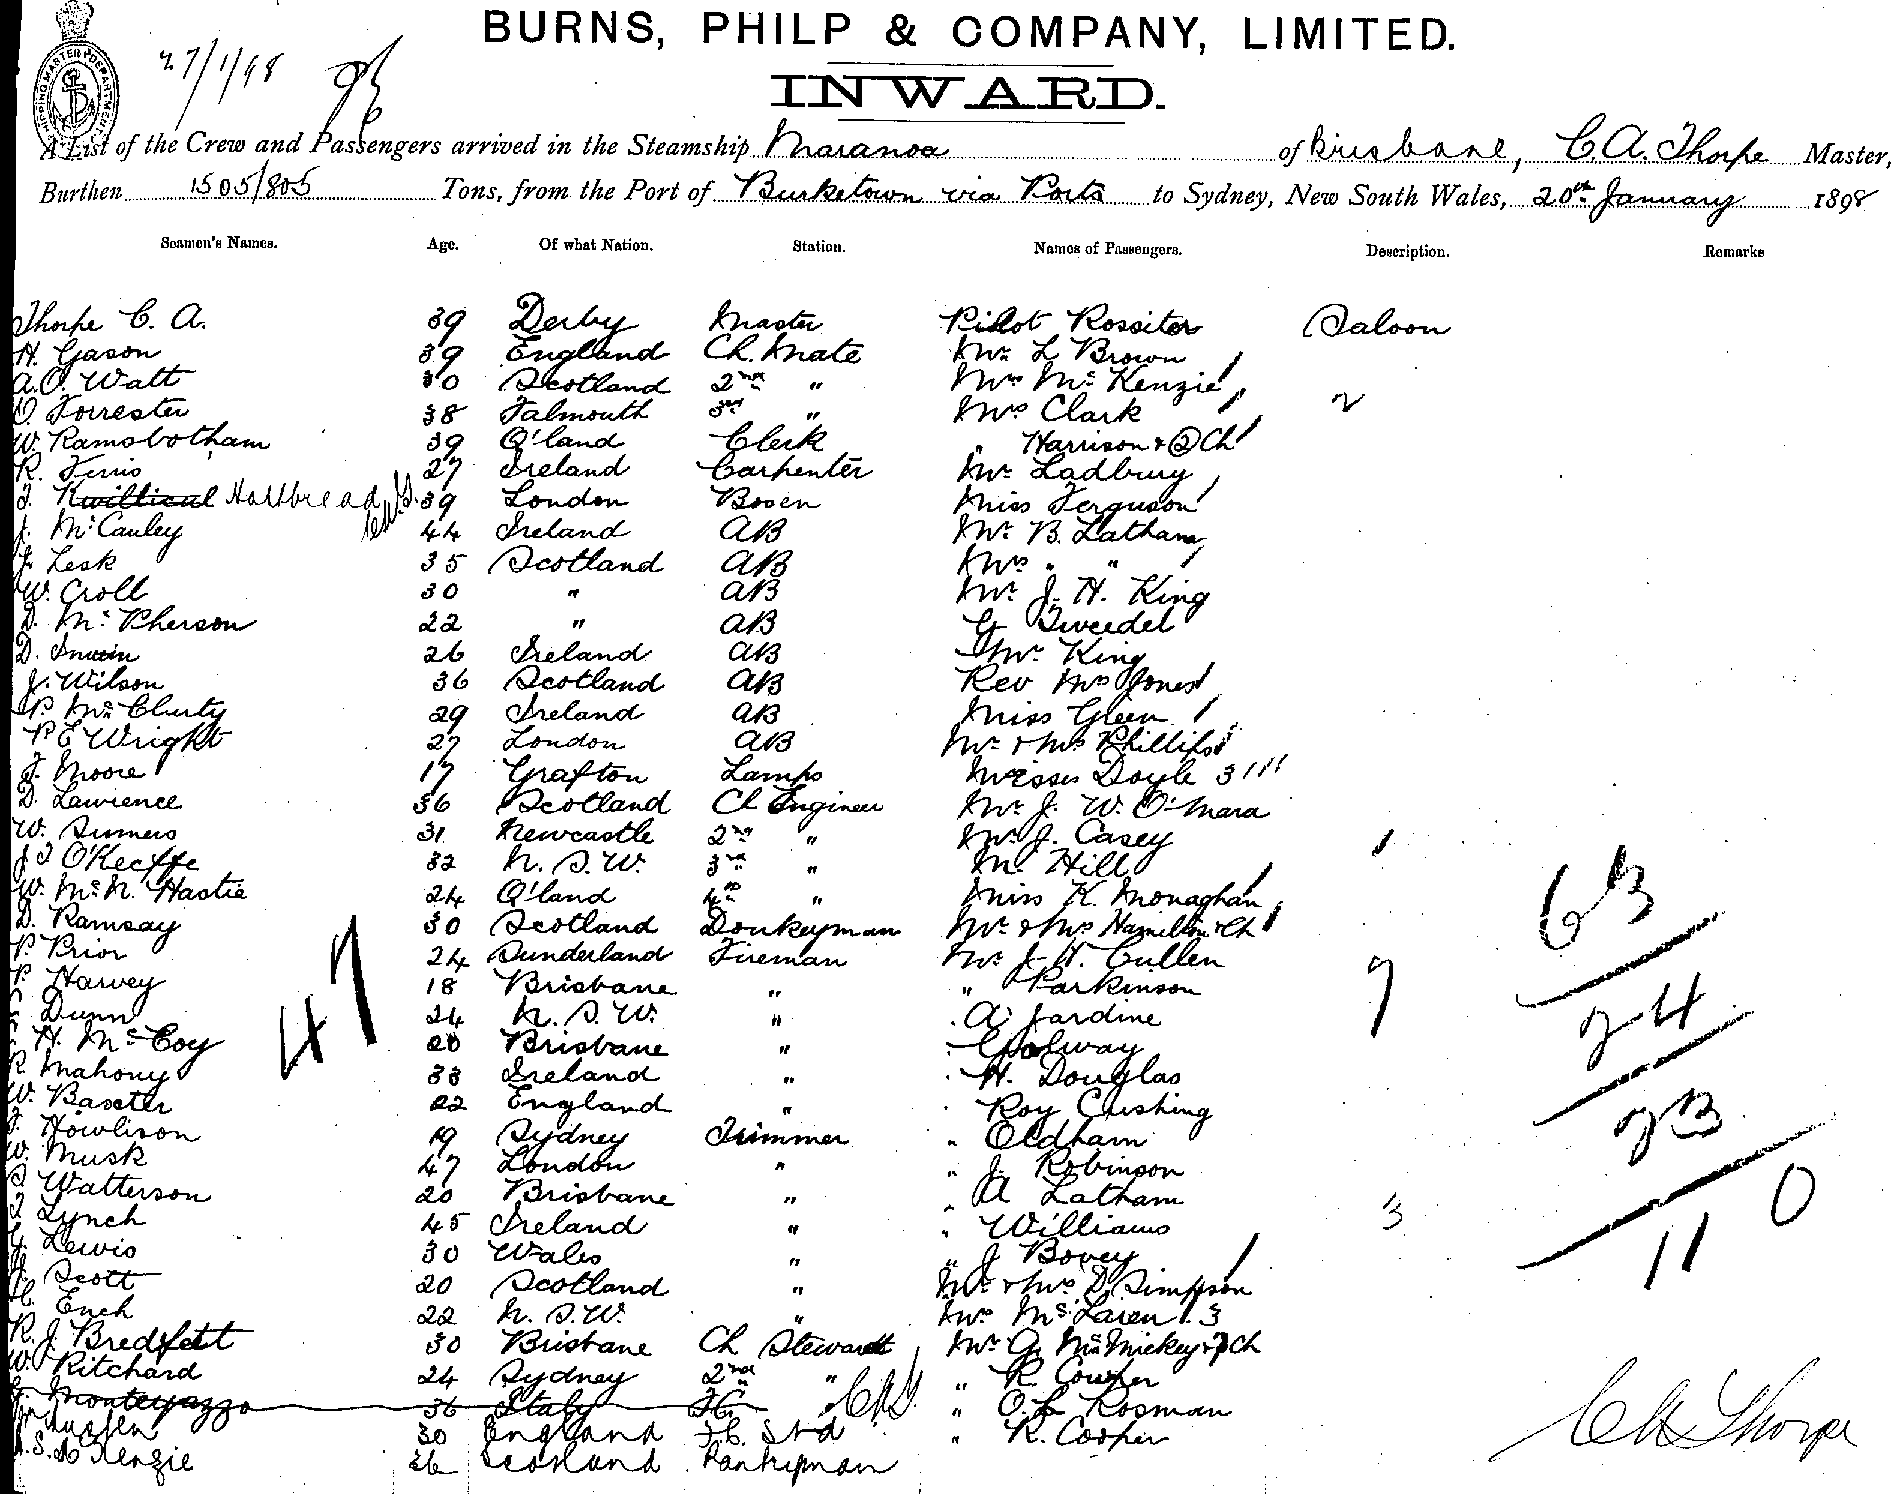 BURNS, PHILP & COMPANY, LIMITED.
INWARD.
27/1/98
A List of the Crew and Passengers arrived in the Steamship Maranoa of Brisbane, C. A. Thorpe Master,
Burthen 1505/805 Tons, from the Port of Burketown via Ports to Sydney, New South Wales, 20th January 1898
Seamen's Names. Age. Of what Nation. Station. Names of Passengers. Description. Remarks
Thorpe C. A. 39 Derby Master Pilot Rossiter Saloon
H. Gason 39 England Ch. Mate Mr L Brown
A. O. Watt 30 Scotland 2nd " Mrs McKenzie
O. Forrester 38 Falmouth 3rd " Mrs Clark 2
W. Ramsbotham 39 Q'land Clerk " Harrison & 2 Ch
R. Ferris 27 Ireland Carpenter Mr Ladbury
39 London Bosen Miss Ferguson
J. McCauley 44 Ireland AB Mr B. Latham
J. Lesk 35 Scotland AB Mrs " "
W. Croll 30 " AB Mr J. H. King
D. McPherson 22 " AB G Tweedel
D. Irwin 26 Ireland AB Mr King
J. Wilson 36 Scotland AB Rev Mrs Jones
P. McClurty 29 Ireland AB Miss Gleen
P E Wright 27 London AB Mr & Mrs Phillips
J. Moore 17 Grafton Lamps Misses Doyle 3
D. Lawrence 36 Scotland Ch Engineer Mr J. W. O'Mara
W. Sumers 31 Newcastle 2nd " Mr J. Casey
J J O'Keeffe 32 N. S. W. 3rd " M Hill
W. McN. Hastie 24 Q'land 4th " Miss K. Monaghan
D. Ramsay 30 Scotland Donkeyman Mr & Mrs Hamilton & Ch
P. Prior 24 Sunderland Fireman Mr J. H. Cullen
P. Harvey 18 Brisbane " " Parkinson
Dunn 24 N. S. W. " " A Jardine
H. McCoy 20 Brisbane " " Galway
R. Mahony 33 Ireland " " H. Douglas
W. Baxter 22 England " Roy Cushing
J. Howlison 19 Sydney Trimmer " Oldham
W. Musk 47 London " " J. Robinson
Watterson 20 Brisbane " " A Latham
Lynch 45 Ireland " " Williams
Lewis 30 Wales " " J Bovey
Scott 20 Scotland " Mr & Mrs D. Simpson
Ench 22 N. S. W. " Mrs McLaren 3
R. J. Bredfett 30 Brisbane Ch Steward Mrs G. McMickey & 7 Ch
W. Ritchard 24 Sydney 2nd " " R. Cowper
36 Italy " C.A.T. " O. L Rosman
30 England F.C. Std " R. Cooper
McKenzie 26 Scotland Pantryman
47
63
24
23
110
C A Thorpe